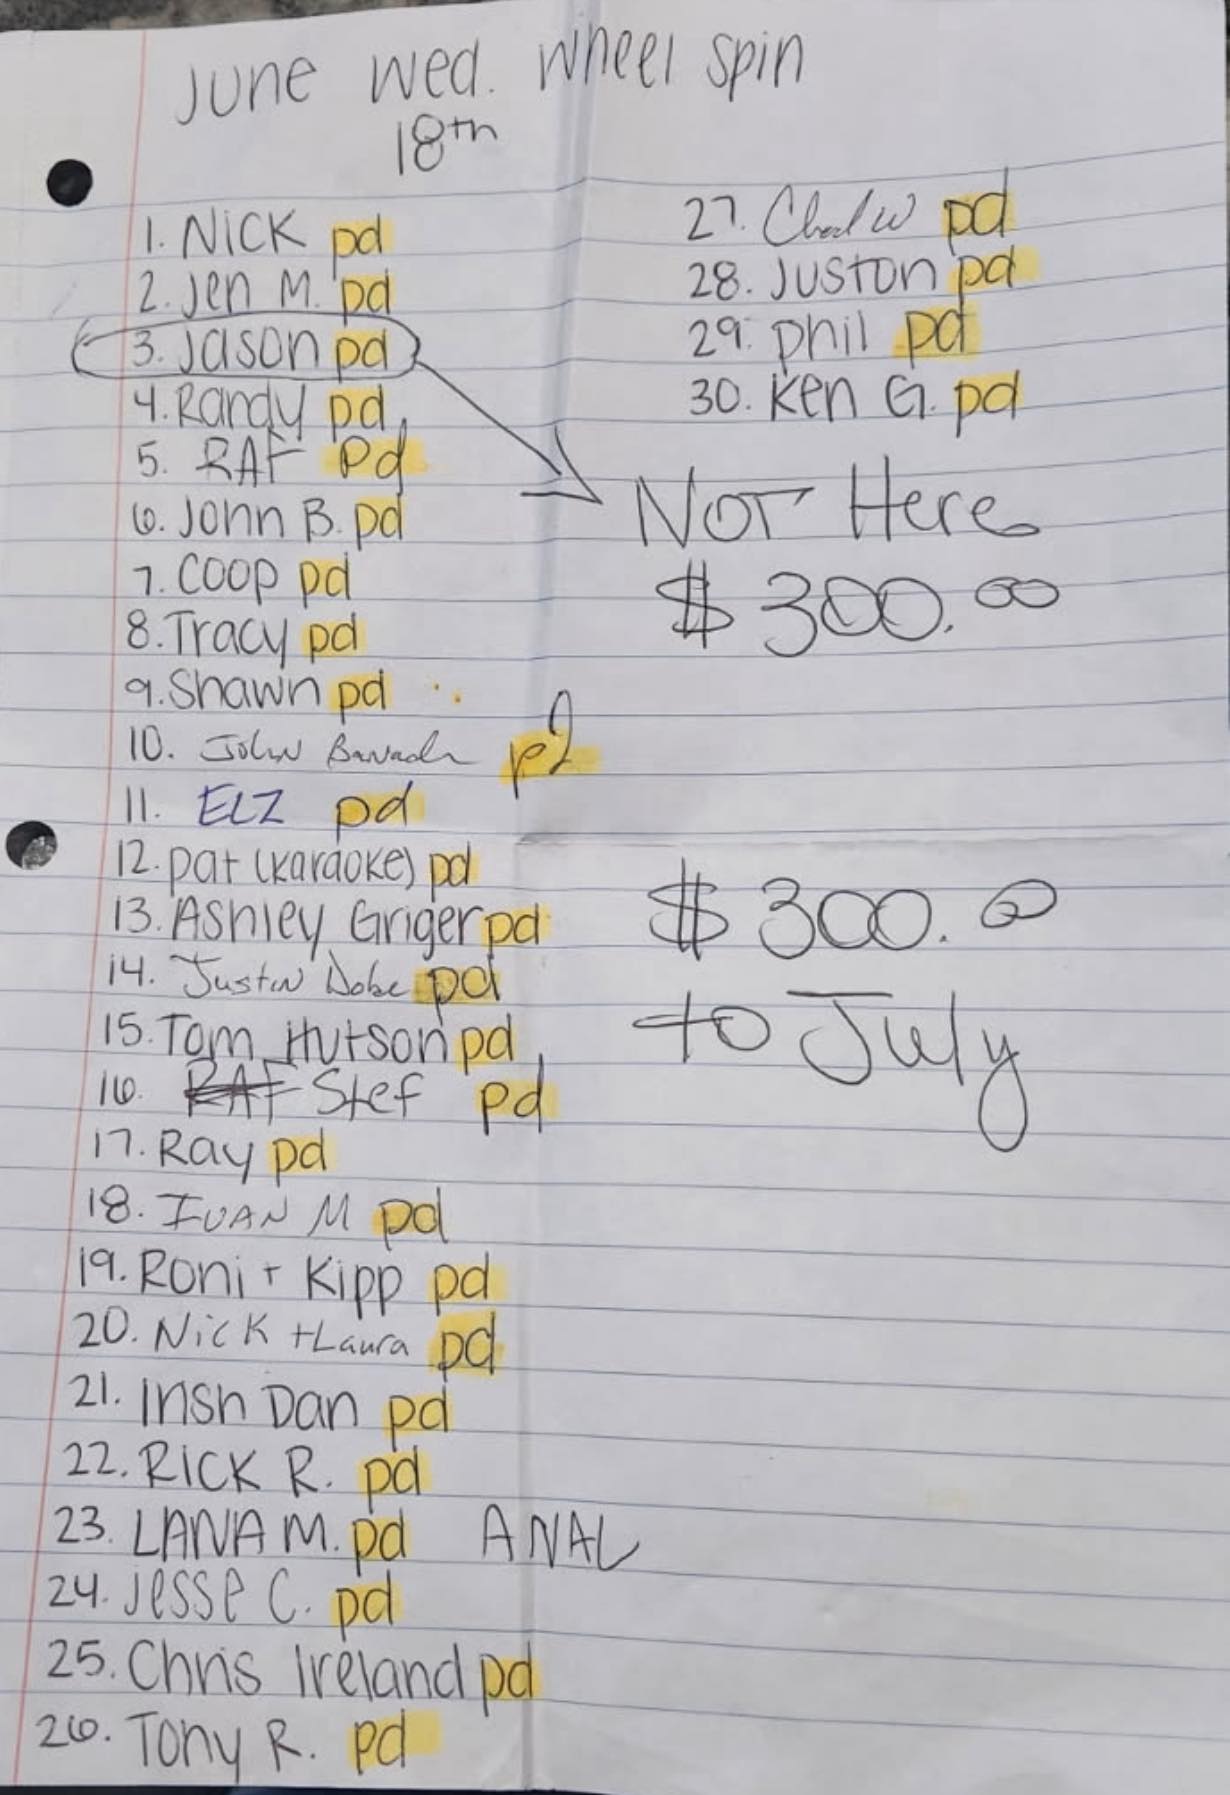 June Wed. Wheel Spin
18th
1. Nick pd
2. Jen M. pd
3. Jason pd
4. Randy pd
5. RAF Pd
6. John B. pd
7. Coop pd
8. Tracy pd
9. Shawn pd
10. John pd
11. ELZ pd
12. pat (karaoke) pd
13. Ashley Griger pd
14. Justin Dobe pd
15. Tom Hutson pd
16. RAF Stef pd
17. Ray pd
18. IVAN M pd
19. Roni + Kipp pd
20. Nick + Laura pd
21. Irish Dan pd
22. RICK R. pd
23. LANA M. pd ANAL
24. Jesse C. pd
25. Chris Ireland pd
26. Tony R. pd
27. Chad W pd
28. Juston pd
29. phil pd
30. Ken G. pd
NOT Here
$300.00
$300.00
to July